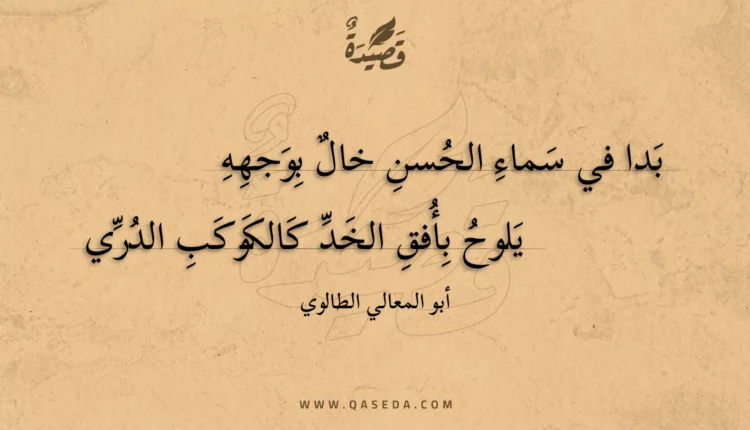 قَصِيدَةٌ
بَدا في سَماءِ الحُسنِ خالٌ بِوَجهِهِ
يَلوحُ بِأُفقِ الخَدِّ كَالكَوكَبِ الدُرِّي
أبو المعالي الطالوي
WWW.QASEDA.COM